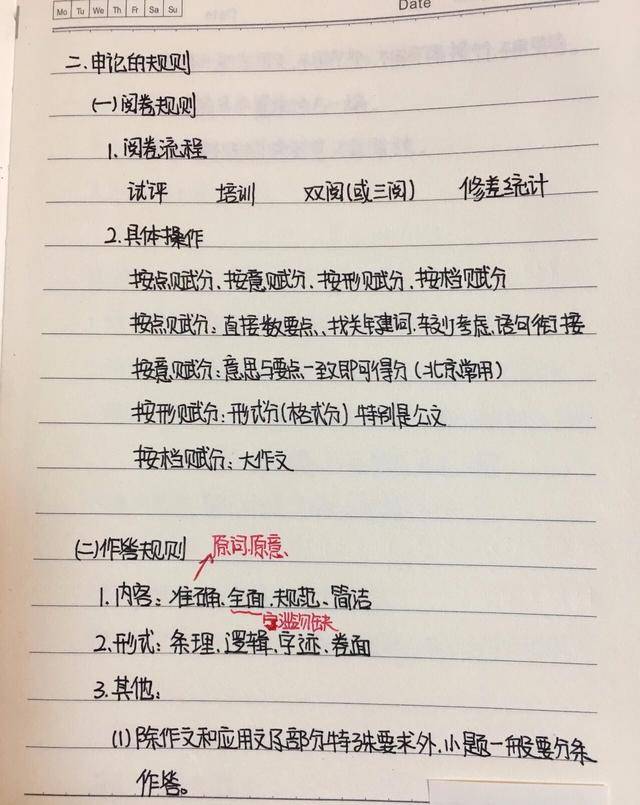 Mo Tu We Th Fr Sa Su
Date
二.申论的规则
(一)阅卷规则
1.阅卷流程
试评 培训 双阅(或三阅) 修差统计
2.具体操作
按点赋分、按意赋分、按形赋分、按档赋分
按点赋分:直接数要点、找关键词.较少考虑.语句衔接
按意赋分:意思与要点一致即可得分(北京常用)
按形赋分:形式分(格式分) 特别是公文
按档赋分:大作文
(二)作答规则
原词.原意、
1.内容:准确、全面.规范、简洁
宁滥勿缺
2.形式:条理、逻辑、字迹、卷面
3.其他:
(1)除作文和应用文及部分特殊要求外,小题一般要分条
作答。